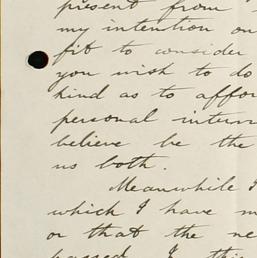 present from
my intention on
fit to consider
you wish to do
kind as to affor
personal interv
believe be the
us both.
Meanwhile I
which I have m
or that the ne
passed I this